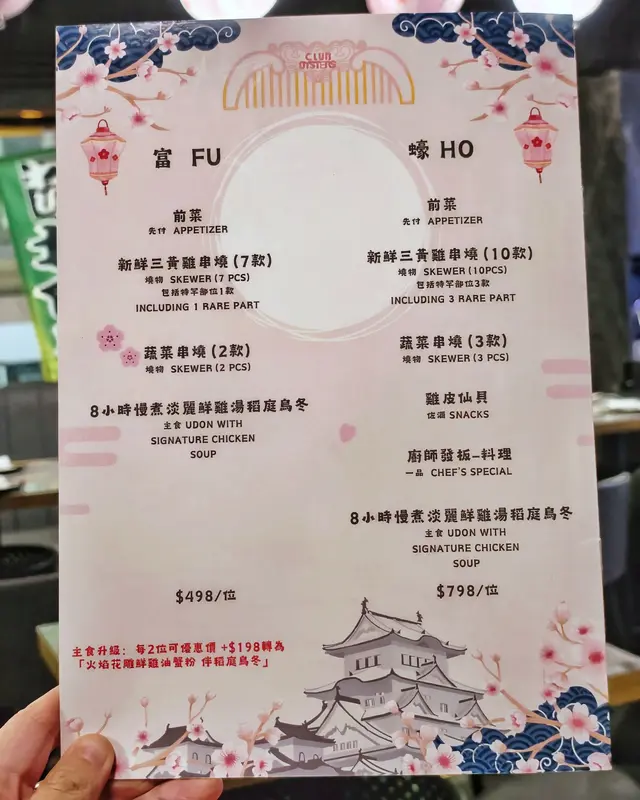 CLUB
OYSTERS
富 FU
前菜
先付 APPETIZER
新鮮三黃雞串燒 (7款)
燒物 SKEWER (7 PCS)
包括特罕部位1款
INCLUDING 1 RARE PART
蔬菜串燒 (2款)
燒物 SKEWER (2 PCS)
8小時慢煮淡麗鮮雞湯稻庭烏冬
主食 UDON WITH
SIGNATURE CHICKEN
SOUP
$498/位
蠔 HO
前菜
先付 APPETIZER
新鮮三黃雞串燒 (10款)
燒物 SKEWER (10PCS)
包括特罕部位3款
INCLUDING 3 RARE PART
蔬菜串燒 (3款)
燒物 SKEWER (3 PCS)
雞皮仙貝
佐酒 SNACKS
廚師發板–料理
一品 CHEF'S SPECIAL
8小時慢煮淡麗鮮雞湯稻庭烏冬
主食 UDON WITH
SIGNATURE CHICKEN
SOUP
$798/位
主食升級: 每2位可優惠價 +$198轉為
「火焰花雕鮮雞油蟹粉 伴稻庭烏冬」